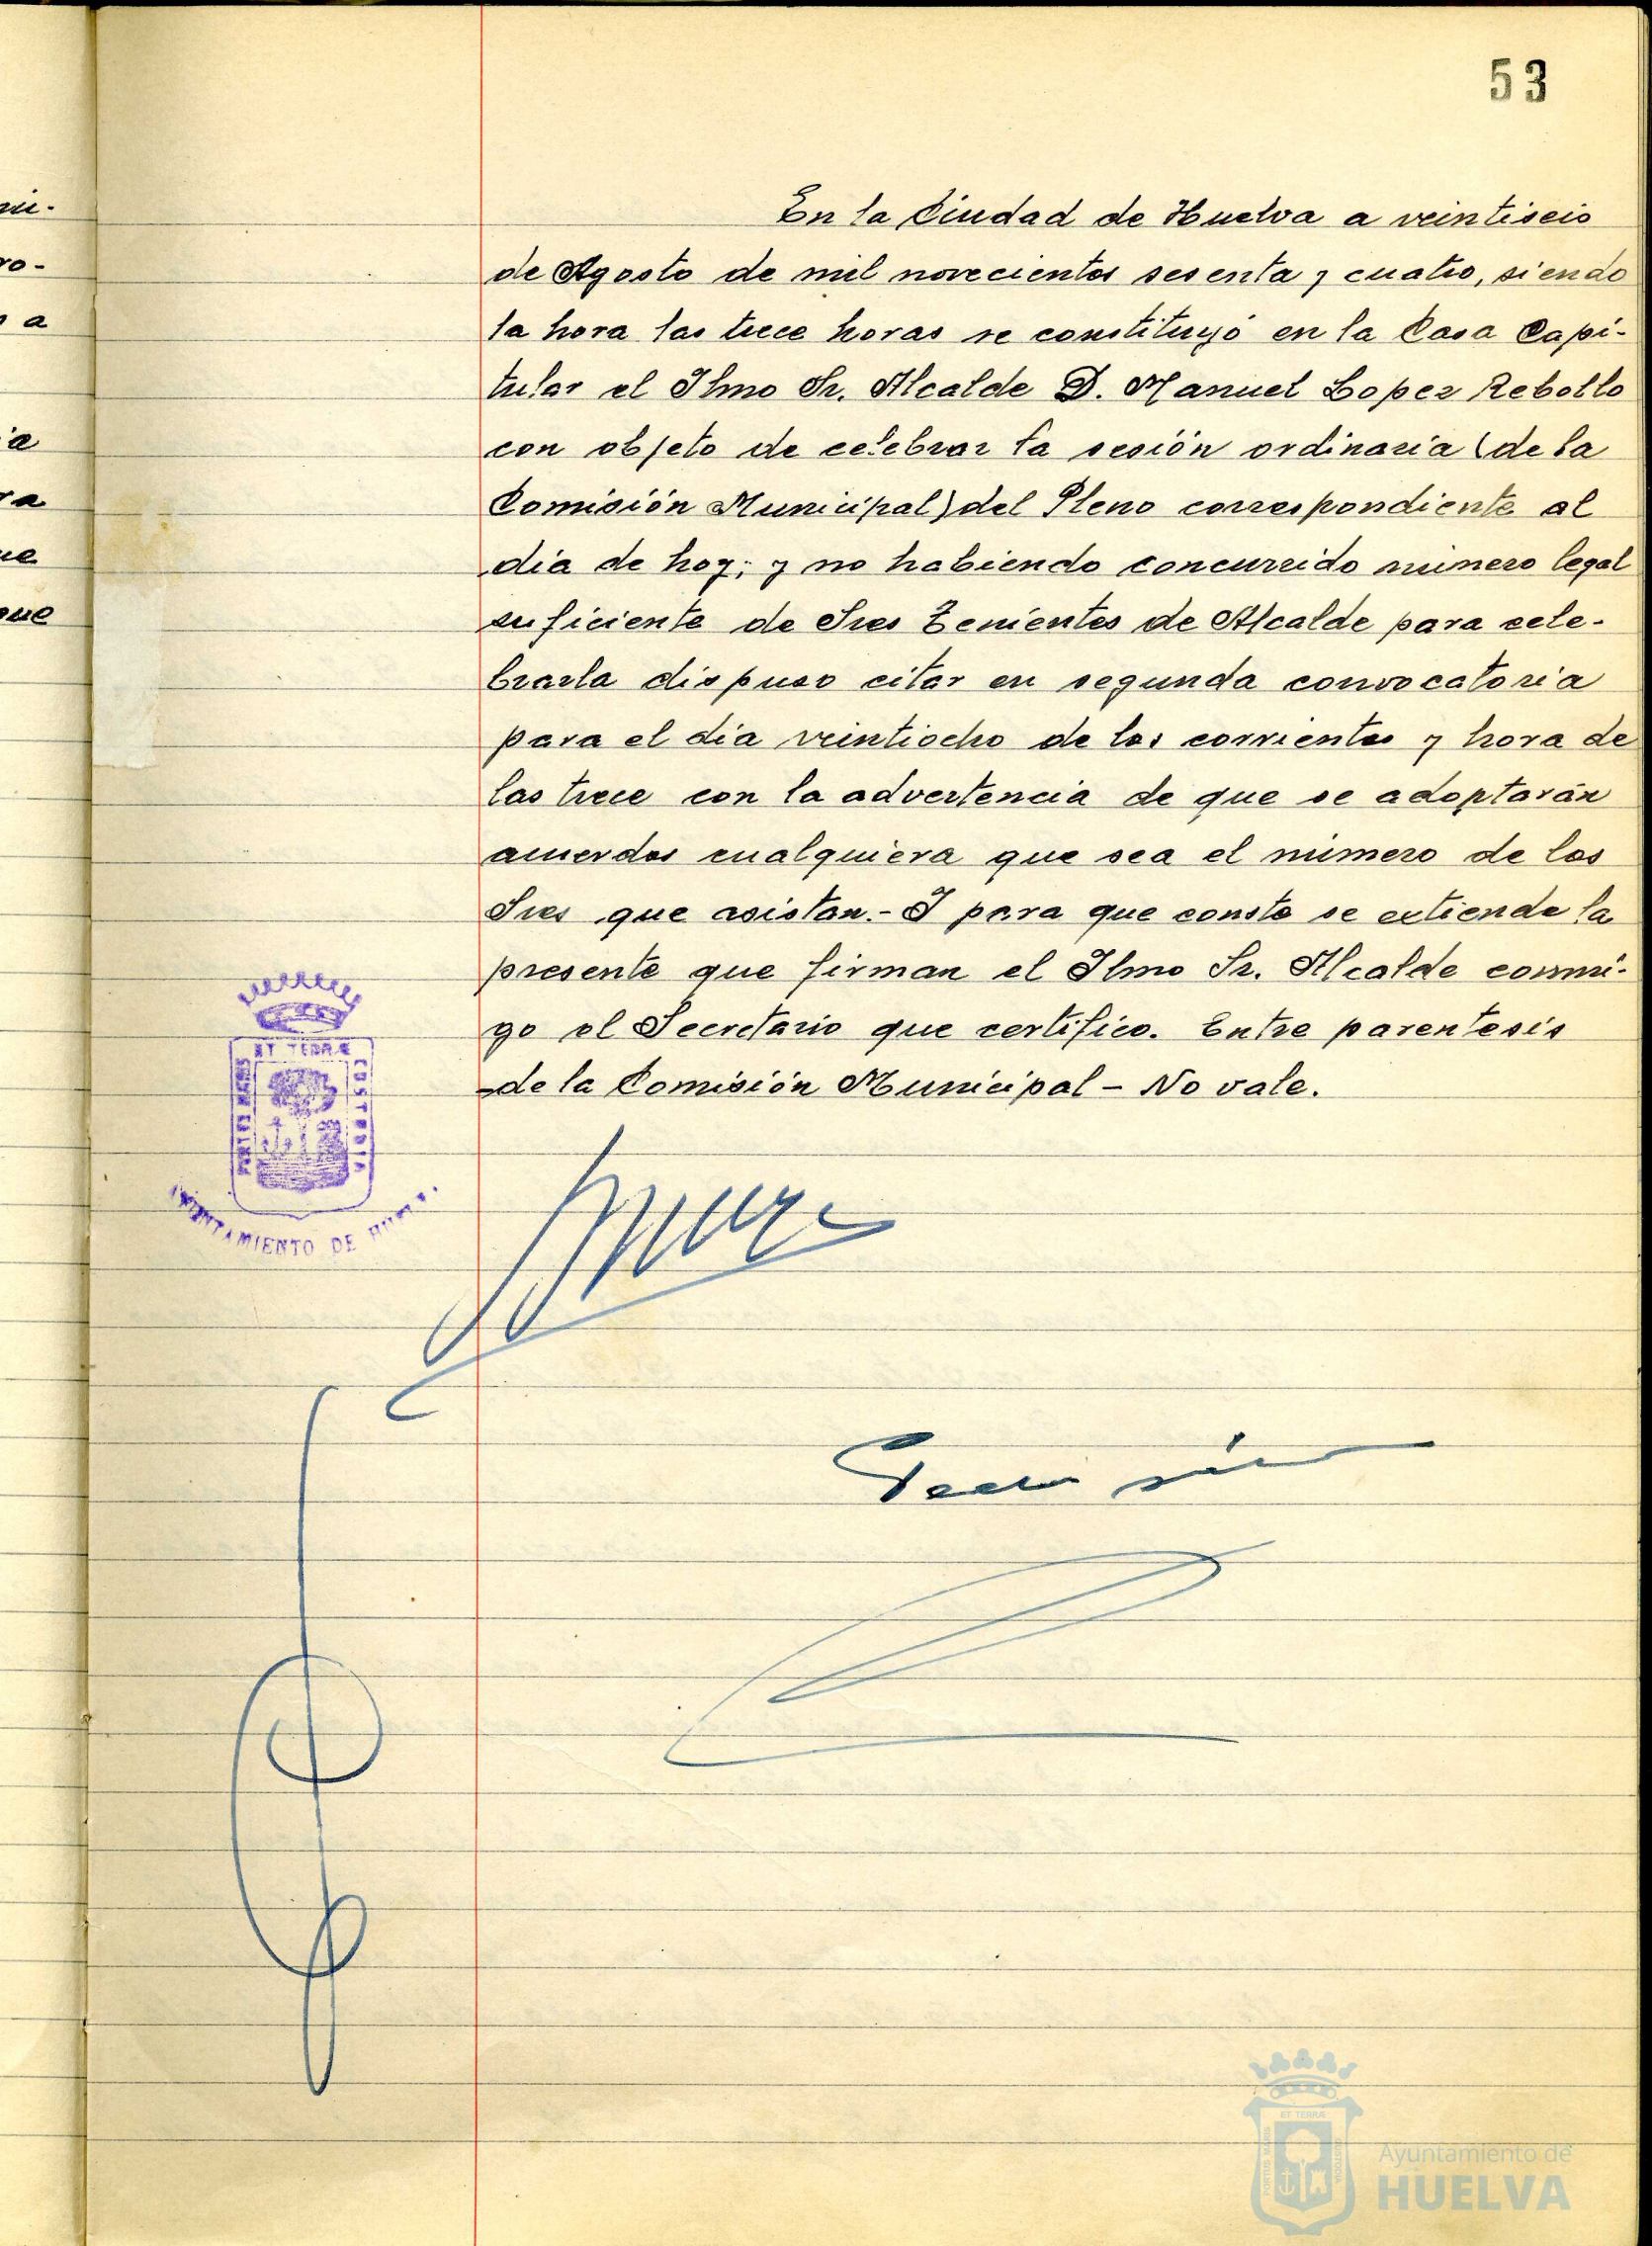 53
ni-
ro-
a
a
ra
ue
que
En la Ciudad de Huelva a veintiseis
de Agosto de mil novecientos sesenta y cuatro, siendo
la hora las trece horas se constituyó en la Casa Capi-
tular el Ilmo Sr. Alcalde D. Manuel Lopez Rebollo
con objeto de celebrar la sesión ordinaria (de la
Comisión Municipal) del Pleno correspondiente al
dia de hoy; y no habiendo concurrido número legal
suficiente de Sres Tenientes de Alcalde para cele-
brarla dispuso citar en segunda convocatoria
para el día veintiocho de los corrientes y hora de
las trece con la advertencia de que se adoptarán
acuerdos cualquiera que sea el número de los
Sres que asistan.- Y para que conste se extiende la
presente que firman el Ilmo Sr. Alcalde conmi-
go el Secretario que certifico. Entre parentesis
-de la Comisión Municipal - No vale.
ET TERRÆ
PORTUS MARIS
CUSTODIA
AYUNTAMIENTO DE HUELVA
ET TERRÆ
PORTUS MARIS
CUSTODIA
Ayuntamiento de
HUELVA